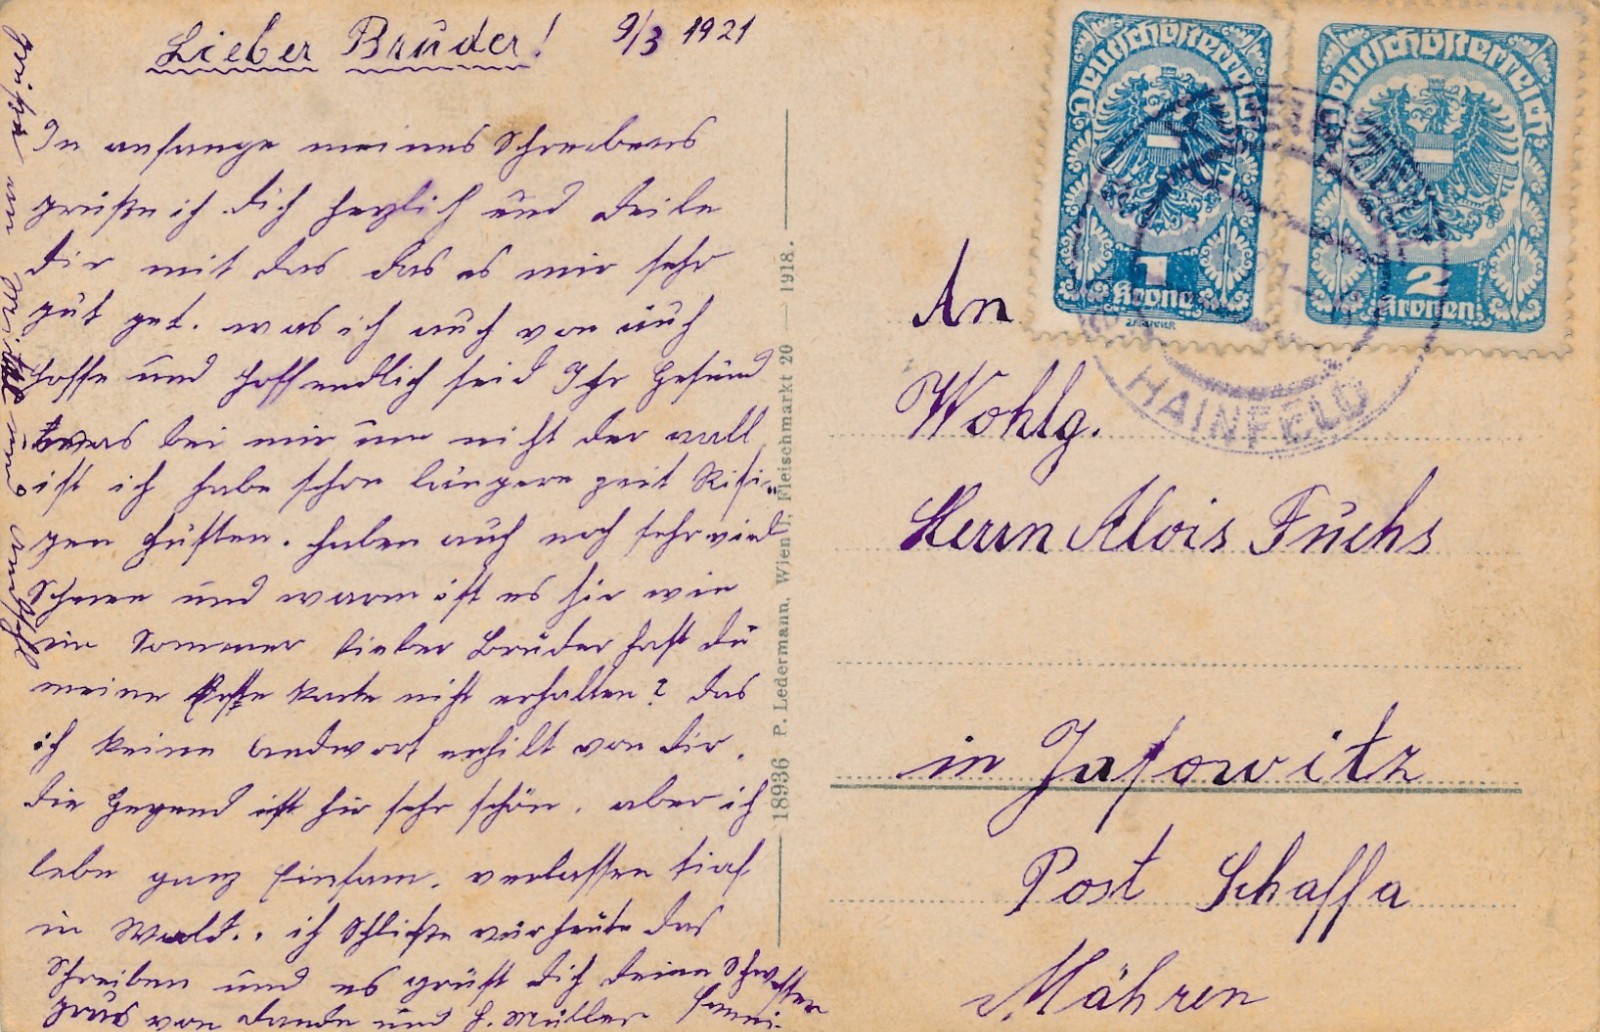 Lieber Bruder! 9/3 1921
In anfange meines Schreibens
grüße ich dich herzlich und teile
dir mit das das es mir sehr
gut get. was ich auch von euch
hoffe und hoffendlich seid Ihr Gesund
was bei mir nicht der vall
ist ich habe schon längere zeit Risi-
gen Husten. haben auch noch sehr viel
Schnee und warm ist es hir wie
im Sommer lieber Bruder hast du
meine Erste karte nicht erhalten? das
ich keine Andwort erhilt von dir.
die Gegend ist hir sehr schön. aber ich
lebe ganz Einsam. verlassen tief
in Wald.. ich Schließe vür heute das
Schreiben und es grüßt dich deine Schwester
grus von Dande und H. Müller Fanni.
18936 P. Ledermann, Wien I., Fleischmarkt 20 1918.
Deutschösterreich
1
Krone
Deutschösterreich
2
Kronen
HAINFELD
An
Wohlg.
Herrn Alois Fuchs
in Jasowitz
Post Schaffa
Mähren